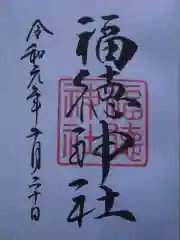 福徳神社
令和元年十一月二十日
福徳
神社